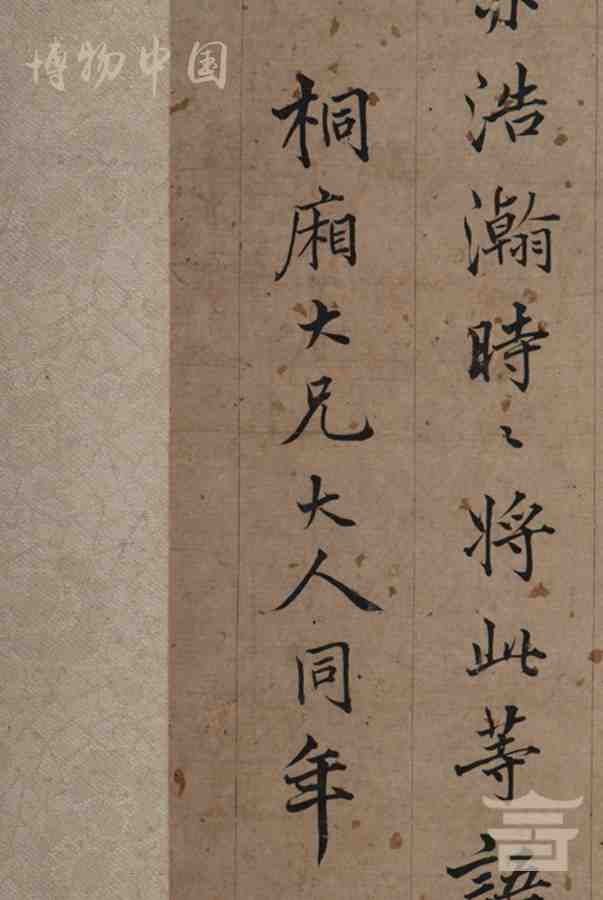 亦浩瀚時〻將此等語
桐廂大兄大人同年
博物中国